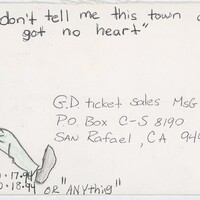 don't tell me this town
got no heart"
G.D ticket sales MSG
P.O. Box C-S 8190
SAN Rafael, CA 94
17.94
18.94
OR "ANYthing"